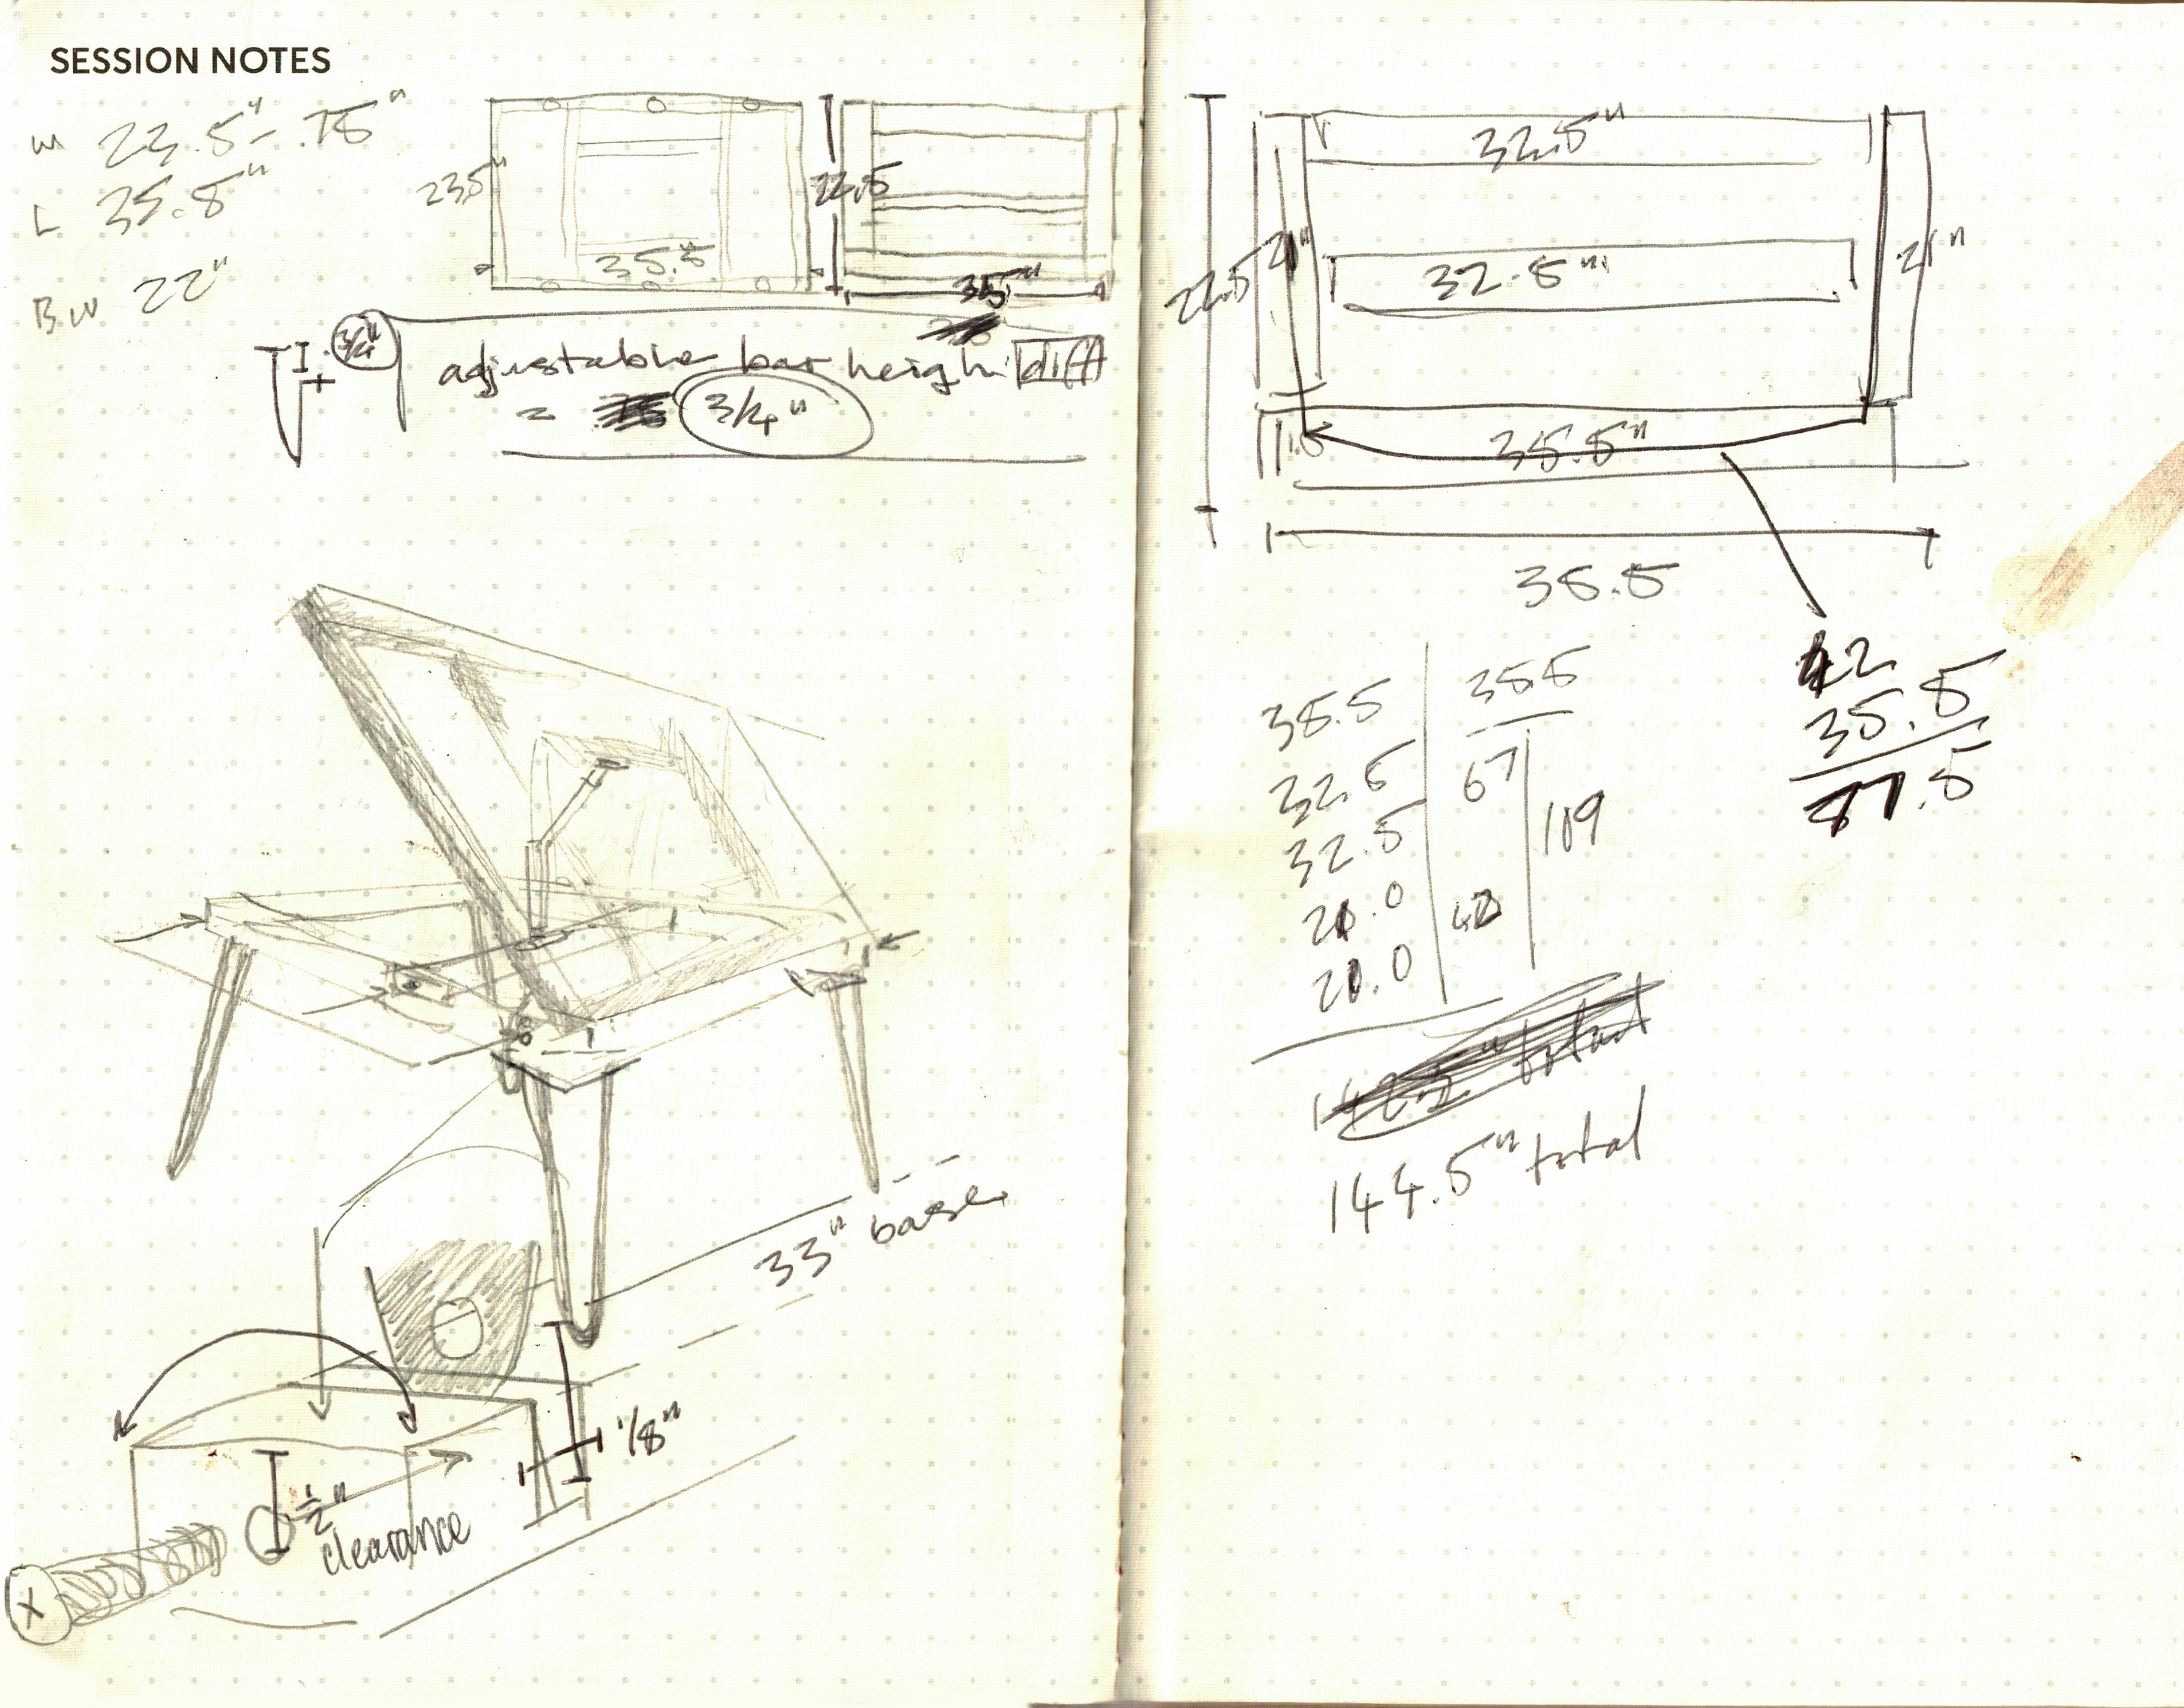 SESSION NOTES
W 23.5" - .75"
L 35.5"
BW 22"
23.5"
35.5"
22.5
35"
3/4"
adjustable bar height diff
= 3/4"
33" base
1/8"
1/2"
clearance
X
32.5"
32.5"
22.5
21"
21"
1.5
35.5"
35.5
35.5
32.5
32.5
21.0
21.0
35.5
67
42
109
144.5" total
42
35.5
77.5